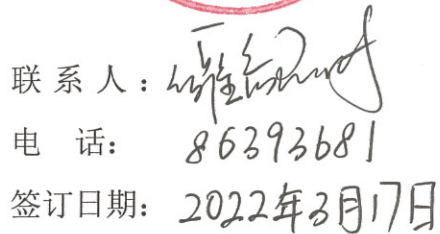 联系人：
电 话： 86393681
签订日期： 2022年3月17日